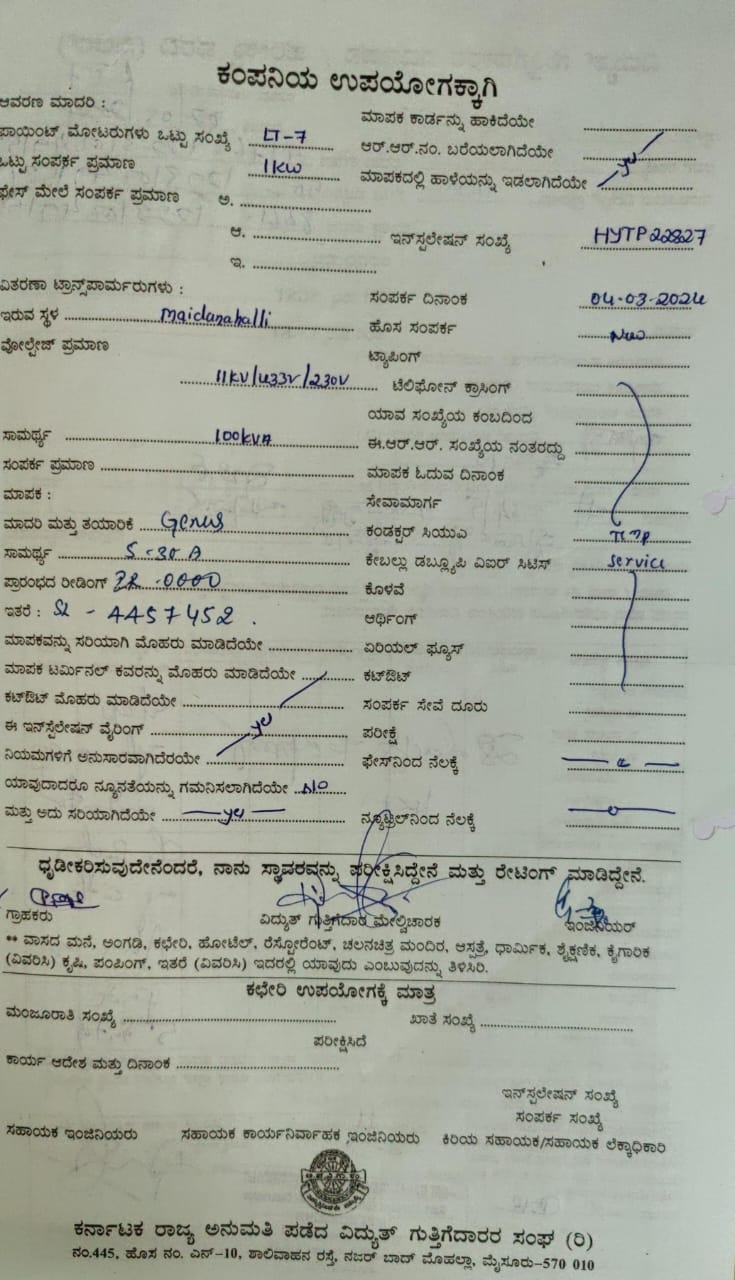 ಕಂಪನಿಯ ಉಪಯೋಗಕ್ಕಾಗಿ
ಆವರಣ ಮಾದರಿ :
ಮಾಪಕ ಕಾರ್ಡನ್ನು ಹಾಕಿದೆಯೇ
ಪಾಯಿಂಟ್ ಮೋಟರುಗಳು ಒಟ್ಟು ಸಂಖ್ಯೆ LT-7
ಆರ್.ಆರ್.ನಂ. ಬರೆಯಲಾಗಿದೆಯೇ
ಒಟ್ಟು ಸಂಪರ್ಕ ಪ್ರಮಾಣ 1KW
ಮಾಪಕದಲ್ಲಿ ಹಾಳೆಯನ್ನು ಇಡಲಾಗಿದೆಯೇ yes
ಫೇಸ್ ಮೇಲೆ ಸಂಪರ್ಕ ಪ್ರಮಾಣ ಅ.
ಆ. ಇನ್‌ಸ್ಪಲೇಷನ್ ಸಂಖ್ಯೆ HYTP22827
ಇ.
ವಿತರಣಾ ಟ್ರಾನ್ಸ್‌ಪಾರ್ಮರುಗಳು :
ಸಂಪರ್ಕ ದಿನಾಂಕ 04-03-2024
ಇರುವ ಸ್ಥಳ Maidanahalli
ಹೊಸ ಸಂಪರ್ಕ New
ವೋಲ್ಟೇಜ್ ಪ್ರಮಾಣ
ಟ್ಯಾಪಿಂಗ್
11KV/433V/230V ಟೆಲಿಫೋನ್ ಕ್ರಾಸಿಂಗ್
ಯಾವ ಸಂಖ್ಯೆಯ ಕಂಬದಿಂದ
ಸಾಮರ್ಥ್ಯ 100KVA
ಈ.ಆರ್.ಆರ್. ಸಂಖ್ಯೆಯ ನಂತರದ್ದು
ಸಂಪರ್ಕ ಪ್ರಮಾಣ
ಮಾಪಕ ಓದುವ ದಿನಾಂಕ
ಮಾಪಕ :
ಸೇವಾಮಾರ್ಗ
ಮಾದರಿ ಮತ್ತು ತಯಾರಿಕೆ Genus
ಕಂಡಕ್ಟರ್ ಸಿಯುಎ Temp
ಸಾಮರ್ಥ್ಯ 5-30 A
ಕೇಬಲ್ಲು ಡಬ್ಲ್ಯೂಪಿ ವಿಐರ್ ಸಿಟಿಸ್ Service
ಪ್ರಾರಂಭದ ರೀಡಿಂಗ್ IR-0000
ಕೊಳವೆ
ಇತರೆ : SL - 4457452 .
ಆರ್ಥಿಂಗ್
ಮಾಪಕವನ್ನು ಸರಿಯಾಗಿ ಮೊಹರು ಮಾಡಿದೆಯೇ
ಏರಿಯಲ್ ಫ್ಯೂಸ್
ಮಾಪಕ ಟರ್ಮಿನಲ್ ಕವರನ್ನು ಮೊಹರು ಮಾಡಿದೆಯೇ
ಕಟ್‌ಔಟ್
ಕಟ್‌ಔಟ್ ಮೊಹರು ಮಾಡಿದೆಯೇ
ಸಂಪರ್ಕ ಸೇವೆ ದೂರು
ಈ ಇನ್‌ಸ್ಪೆಲೇಷನ್ ವೈರಿಂಗ್ yes
ಪರೀಕ್ಷೆ
ನಿಯಮಗಳಿಗೆ ಅನುಸಾರವಾಗಿದೆರಯೇ
ಫೇಸ್‌ನಿಂದ ನೆಲಕ್ಕೆ
ಯಾವುದಾದರೂ ನ್ಯೂನತೆಯನ್ನು ಗಮನಿಸಲಾಗಿದೆಯೇ No
ಮತ್ತು ಅದು ಸರಿಯಾಗಿದೆಯೇ yes
ನ್ಯೂಟ್ರಲ್‌ನಿಂದ ನೆಲಕ್ಕೆ
ಧೃಡೀಕರಿಸುವುದೇನೆಂದರೆ, ನಾನು ಸ್ಥಾವರವನ್ನು ಪರೀಕ್ಷಿಸಿದ್ದೇನೆ ಮತ್ತು ರೇಟಿಂಗ್ ಮಾಡಿದ್ದೇನೆ.
ಗ್ರಾಹಕರು ವಿದ್ಯುತ್ ಗುತ್ತಿಗೆದಾರ ಮೇಲ್ವಿಚಾರಕ ಇಂಜಿನಿಯರ್
** ವಾಸದ ಮನೆ, ಅಂಗಡಿ, ಕಛೇರಿ, ಹೋಟೆಲ್, ರೆಸ್ಟೋರೆಂಟ್, ಚಲನಚಿತ್ರ ಮಂದಿರ, ಆಸ್ಪತ್ರೆ, ಧಾರ್ಮಿಕ, ಶೈಕ್ಷಣಿಕ, ಕೈಗಾರಿಕ
(ವಿವರಿಸಿ) ಕೃಷಿ, ಪಂಪಿಂಗ್, ಇತರೆ (ವಿವರಿಸಿ) ಇದರಲ್ಲಿ ಯಾವುದು ಎಂಬುವುದನ್ನು ತಿಳಿಸಿರಿ.
ಕಛೇರಿ ಉಪಯೋಗಕ್ಕೆ ಮಾತ್ರ
ಮಂಜೂರಾತಿ ಸಂಖ್ಯೆ ಖಾತೆ ಸಂಖ್ಯೆ
ಪರೀಕ್ಷಿಸಿದೆ
ಕಾರ್ಯ ಆದೇಶ ಮತ್ತು ದಿನಾಂಕ
ಇನ್‌ಸ್ಪಲೇಷನ್ ಸಂಖ್ಯೆ
ಸಂಪರ್ಕ ಸಂಖ್ಯೆ
ಸಹಾಯಕ ಇಂಜಿನಿಯರು ಸಹಾಯಕ ಕಾರ್ಯನಿರ್ವಾಹಕ ಇಂಜಿನಿಯರು ಕಿರಿಯ ಸಹಾಯಕ/ಸಹಾಯಕ ಲೆಕ್ಕಾಧಿಕಾರಿ
ಕರ್ನಾಟಕ ರಾಜ್ಯ ಅನುಮತಿ ಪಡೆದ ವಿದ್ಯುತ್ ಗುತ್ತಿಗೆದಾರರ ಸಂಘ (ರಿ)
ನಂ.445, ಹೊಸ ನಂ. ಎನ್-10, ಶಾಲಿವಾಹನ ರಸ್ತೆ, ನಜರ್ ಬಾದ್ ಮೊಹಲ್ಲಾ, ಮೈಸೂರು-570 010